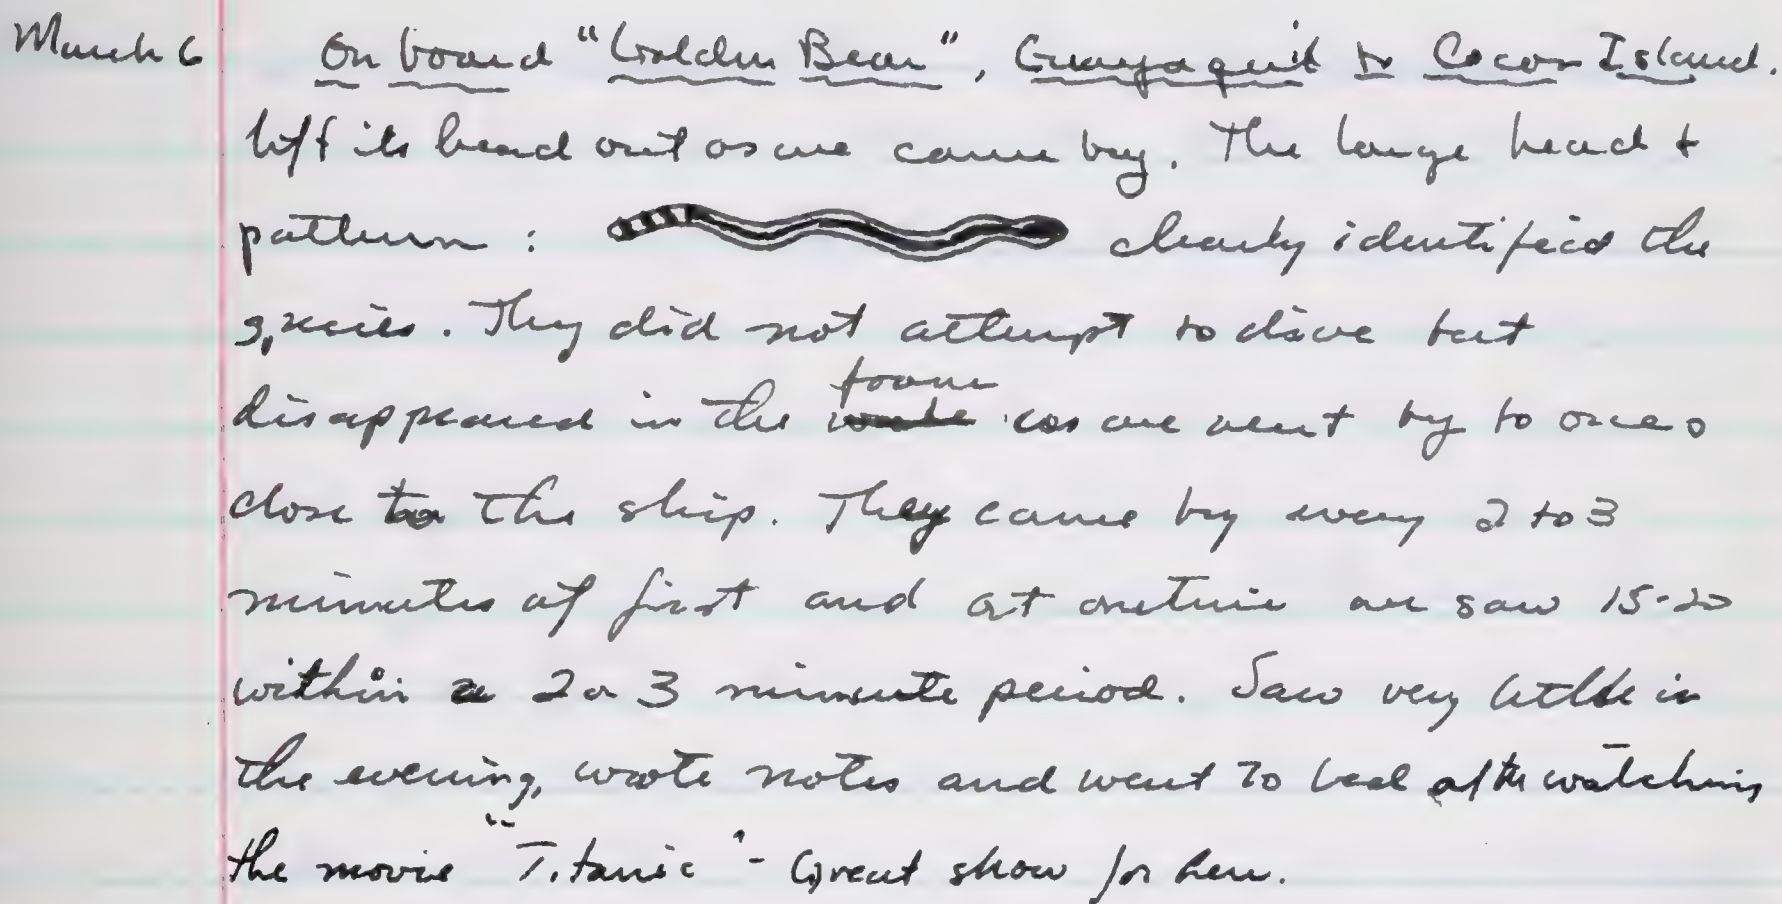 March 6 On board "Golden Bear", Guayaquil to Cocos Island.
lift its head out as we came by. The large head +
pattern : clearly identified the
species. They did not attempt to dive but
foam
disappeared in the wake as we went by to ones
close to the ship. They came by every 2 to 3
minutes at first and at onetime we saw 15-20
within a 2 or 3 minute period. Saw very little in
the evening, wrote notes and went to bed after watching
the movie "Titanic" - Great show for here.